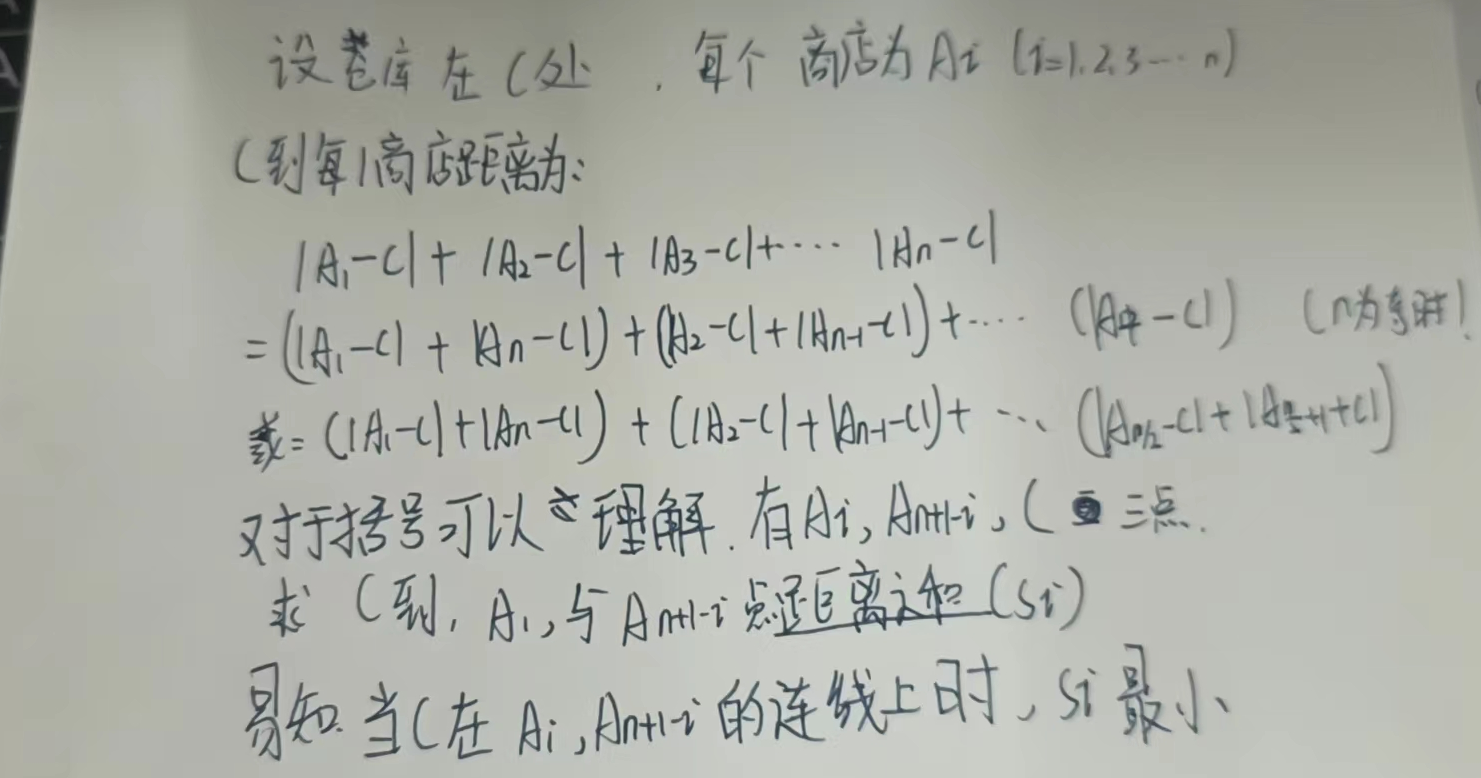 设仓库在C处，每个商店为Ai (i=1,2,3…n)
C到每个商店距离为：
|A₁-C| + |A₂-C| + |A₃-C|+…. |An-C|
=(|A₁-C| + |An-C|) + (|A₂-C|+|An-1-C|)+…. -C|) (n为奇数时)
或= (|A₁-C|+|An-C|) + (|A₂-C|+|An-1-C|)+ … (|An/2-C|+|An/2+1+C|)
对于括号可以 理解.有Ai, An+1-i, C 三点.
求 C到, A₁,与An+1-i点距离之和(Si)
易知.当C在Ai,An+1-i的连线上时, Si最小